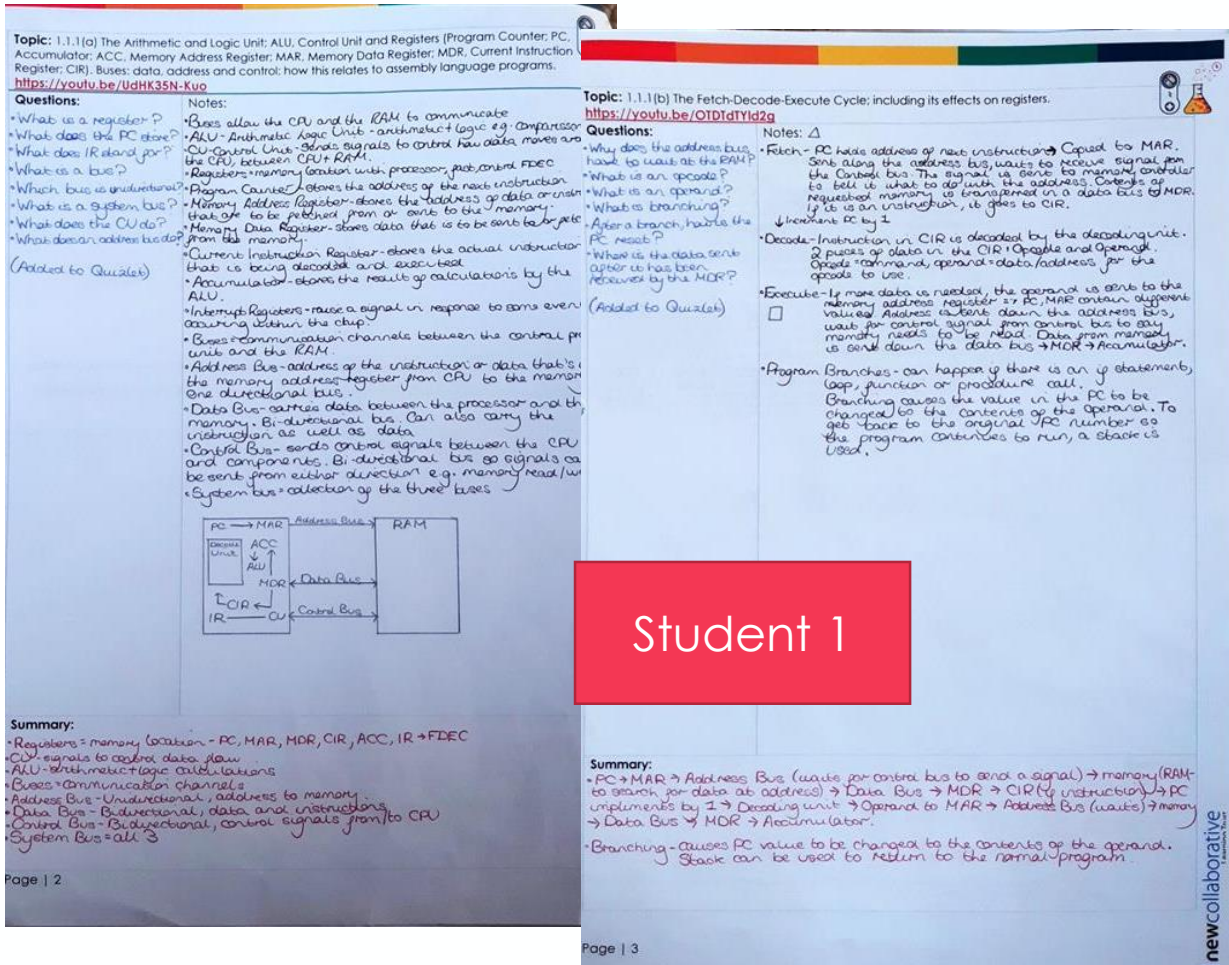 Topic: 1.1.1(a) The Arithmetic and Logic Unit; ALU, Control Unit and Registers (Program Counter; PC,
Accumulator; ACC, Memory Address Register; MAR, Memory Data Register; MDR, Current Instruction
Register; CIR). Buses: data, address and control: how this relates to assembly language programs.
https://youtu.be/UdHK35N-Kuo
Questions:
•What is a register?
•What does the PC store?
•What does IR stand for?
•What is a bus?
•Which bus is unidirectional?
•What is a system bus?
•What does the CU do?
•What does an address bus do?
(Added to Quizlet)
Notes:
•Buses allow the CPU and the RAM to communicate
•ALU-Arithmetic Logic Unit-arithmetic+logic eg. comparisson
•CU-Control Unit-Sends signals to control how data moves
the CPU, between CPU+RAM.
•Registers=memory location with processor, fast, control FDEC
•Program Counter-stores the address of the next instruction
•Memory Address Register-stores the address of data or
that are to be fetched from or sent to the memory.
•Memory Data Register-stores data that is to be sent to or
from the memory.
•Current Instruction Register-stores the actual instruction
that is being decoded and executed
•Accumulator-stores the result of calculations by the
ALU.
•Interrupt Registers-raise a signal in response to some
occuring within the chip.
•Buses=communication channels between the central
unit and the RAM.
•Address Bus-address of the instruction or data that's
the memory address register from CPU to the
One directional bus.
•Data Bus-carries data between the processor and
memory. Bi-directional bus. Can also carry the
instruction as well as data
•Control Bus-sends control signals between the CPU
and components. Bi-directional bus so signals
be sent from either direction e.g. memory read/
•System bus=collection of the three buses
PC → MAR Address Bus RAM
Decode Unit
ACC
ALU
MDR Data Bus
CIR
IR CU Control Bus
Summary:
•Registers=memory location-PC, MAR, MDR, CIR, ACC, IR→FDEC
•CU-signals to control data flow
•ALU-arithmetic+logic calculations
•Buses=communication channels
•Address Bus-Unidirectional, address to memory.
•Data Bus-Bidirectional, data and instructions
•Control Bus-Bidirectional, control signals from/to CPU
•System Bus=all 3
Page | 2
Topic: 1.1.1(b) The Fetch-Decode-Execute Cycle; including its effects on registers.
https://youtu.be/OTDTdTYld2g
Questions:
•Why does the address bus
have to wait at the RAM?
•What is an opcode?
•What is an operand?
•What is branching?
•After a branch, how is the
PC reset?
•Where is the data sent
after it has been
received by the MDR?
(Added to Quizlet)
Notes: △
•Fetch-PC holds address of next instruction→Copied to MAR.
Sent along the address bus, waits to receive signal from
the Control bus. The signal is sent to memory controller
to tell it what to do with the address. Contents of
requested memory is transferred in a data bus to MDR.
If it is an instruction, it goes to CIR.
↓Increment PC by 1
•Decode-Instruction in CIR is decoded by the decoding unit.
2 pieces of data in the CIR: Opcode and Operand.
Opcode=command, operand=data/address for the
opcode to use.
•Execute-If more data is needed, the operand is sent to the
memory address register => PC, MAR contain different
values. Address is sent down the address bus,
wait for control signal from control bus to say
memory needs to be read. Data from memory
is sent down the data bus→MDR→Accumulator.
•Program Branches-can happen if there is an if statement,
loop, function or procedure call.
Branching causes the value in the PC to be
changed to the contents of the operand. To
get back to the original PC number so
the program continues to run, a stack is
used.
Student 1
Summary:
•PC→MAR→Address Bus (waits for control bus to send a signal)→memory(RAM-
to search for data at address)→Data Bus→MDR→CIR(if instruction)→PC
impliments by 1→Decoding unit→Operand to MAR→Address Bus (waits)→memory
→Data Bus→MDR→Accumulator.
•Branching-causes PC value to be changed to the contents of the operand.
Stack can be used to return to the normal program.
Page | 3
newcollaborative